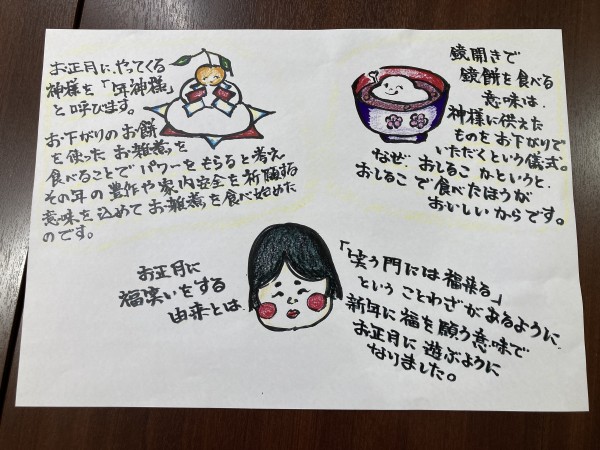 お正月に、やってくる
神様を「年神様」
と呼びます。
お下がりのお餅
を使ったお雑煮を
食べることでパワーをもらうと考え
その年の豊作や家内安全を祈願する
意味を込めてお雑煮を食べ始めた
のです。
鏡開きで
鏡餅を食べる
意味は、
神様に供えた
ものをお下がりで
いただくという儀式。
なぜ、おしるこかというと、
おしるこで食べたほうが
おいしいからです。
お正月に
福笑いをする
由来とは、
「笑う門には福来る」
ということわざがあるように、
新年に福を願う意味で
お正月に遊ぶように
なりました。